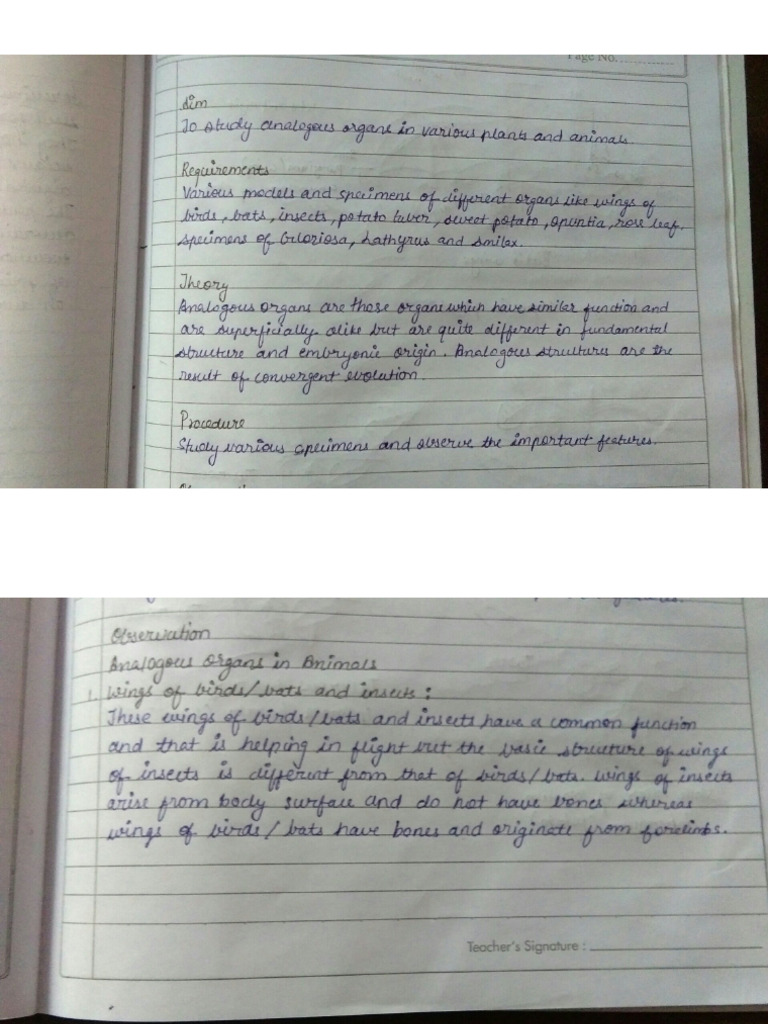 Page No. ..............
Aim
To study analogous organs in various plants and animals.
Requirements
Various models and specimens of different organs like wings of
birds, bats, insects, potato tuber, sweet potato, opuntia, rose leaf.
specimens of Gloriosa, Lathyrus and Smilex.
Theory
Analogous organs are those organs which have similar function and
are superficially alike but are quite different in fundamental
structure and embryonic origin. Analogous structures are the
result of convergent evolution.
Procedure
Study various specimens and observe the important features.
Observation
Analogous organs in Animals
1. Wings of birds/bats and insects :
These wings of birds/bats and insects have a common function
and that is helping in flight but the basic structure of wings
of insects is different from that of birds/bats. wings of insects
arise from body surface and do not have bones whereas
wings of birds/bats have bones and originate from forelimbs.
Teacher's Signature :